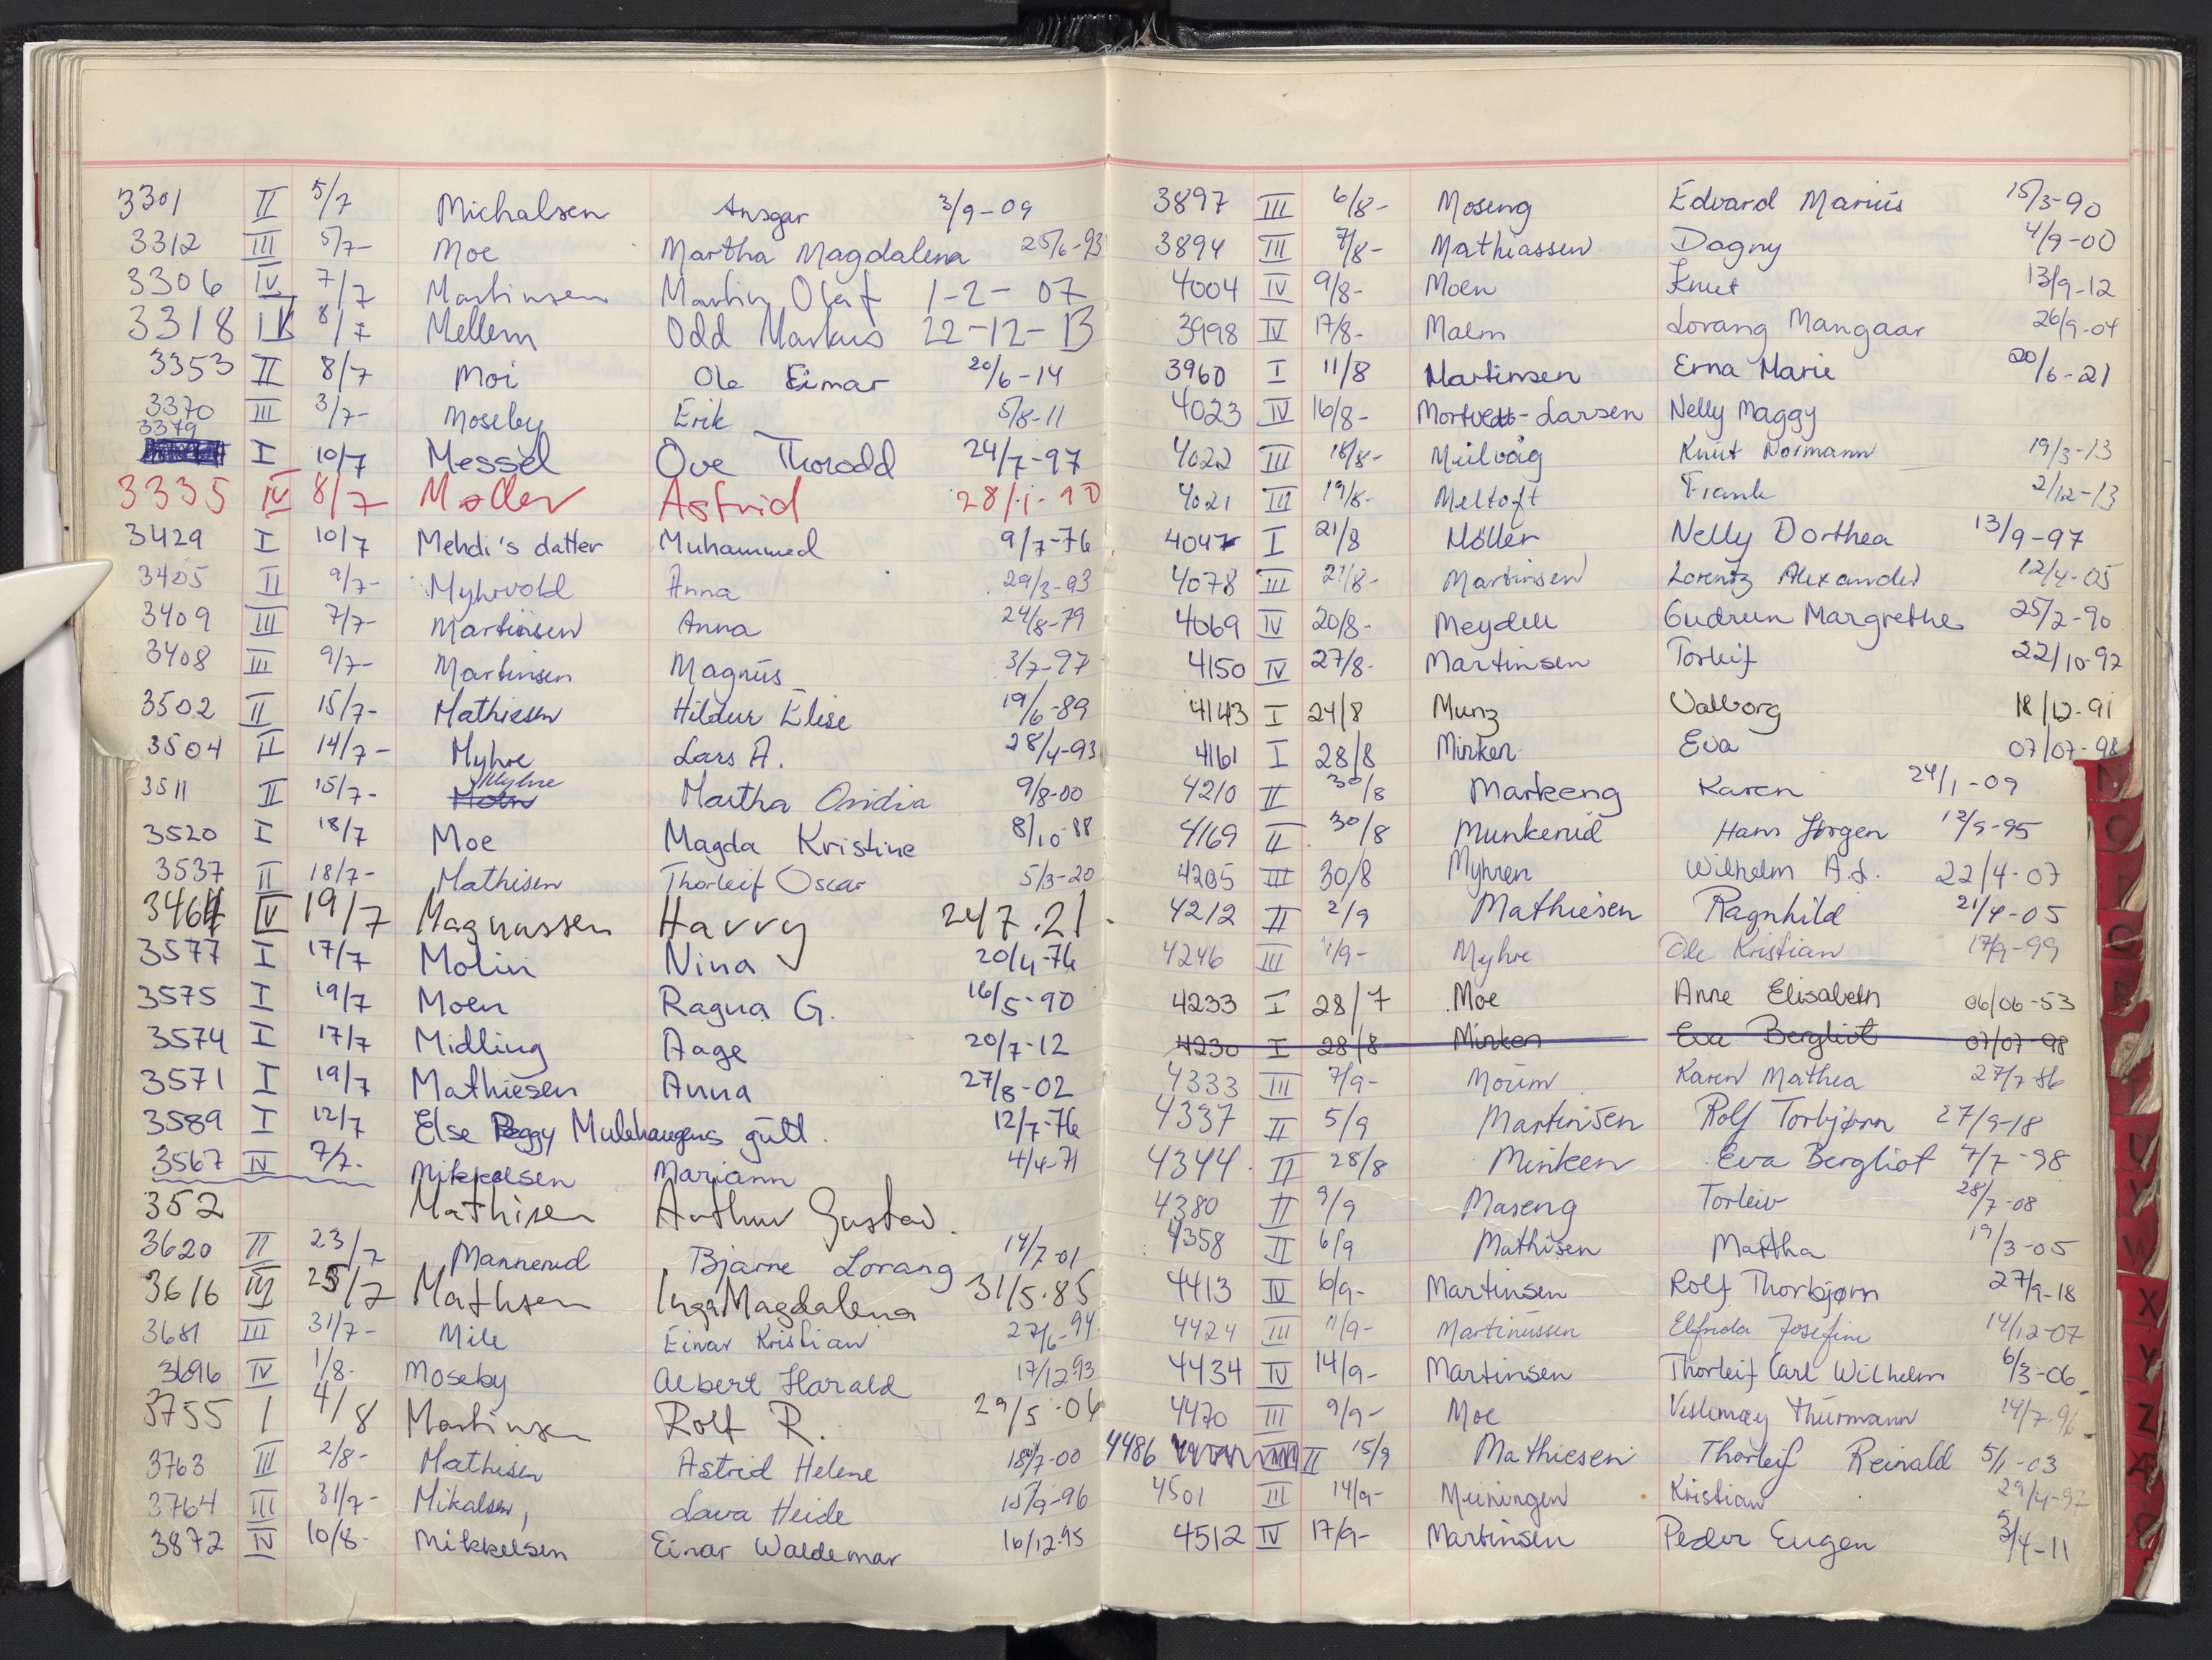 3301 II 5/7 Michalsen Ansgar 3/9-09
3312 III 5/7- Moe Martha Magdalena 25/6-93
3306 IV 7/7 Martinsen Martin Olaf 1-2-07
3318 IV 8/7 Mellem Odd Markus 22-12-13
3353 II 8/7 Moi Ole Eimar 20/6-14
3370 III 3/7- Moseby Erik 5/8-11
3379 I 10/7 Messel Ove Thorodd 24/7-97
3335 IV 8/7 Møller Astrid 28/1-90
3429 I 10/7 Mehdi's datter Muhammed 9/7-76
3405 II 9/7- Myhrvold Anna 29/3-93
3409 III 7/7- Martinsen Anna 24/8-79
3408 III 9/7- Martinsen Magnus 3/7-97
3502 II 15/7- Mathiesen Hildur Elise 19/6-89
3504 II 14/7- Myhre Lars A. 28/4-93
3511 II 15/7- Myhre Martha Ovidia 9/8-00
3520 I 18/7 Moe Magda Kristine 8/10-88
3537 II 18/7- Mathisen Thorleif Oscar 5/3-20
3464 IV 19/7 Magnussen Harry 24/7.21
3577 I 17/7 Molin Nina 20/4-76
3575 I 19/7 Moen Ragna G. 16/5-90
3574 I 17/7 Midling Aage 20/7-12
3571 I 19/7 Mathiesen Anna 27/8-02
3589 I 12/7 Else Peggy Mulehaugens gutt. 12/7-76
3567 IV 7/7. Mikkelsen Mariann 4/4-71
352 Mathisen Arthur Gustav.
3620 II 23/7 Mannerud Bjarne Lorang 14/7-01
3616 III 23/7 Mathsen Inga Magdalena 31/5.85
3681 III 31/7- Mile Einar Kristian 27/6-94
3696 IV 1/8- Moseby Albert Harald 17/12 93
3755 I 4/8 Martinsen Rolf R. 29/5-06
3763 III 2/8- Mathisen Astrid Helene 18/7-00
3764 III 31/7- Mikalsen, Lava Heide 15/9-96
3872 IV 10/8- Mikkelsen Einar Waldemar 16/12-95
3897 III 6/8- Moseng Edvard Marius 15/3-90
3894 III 7/8- Mathiassen Dagny 4/9-00
4004 IV 9/8- Moen Knut 13/9-12
3998 IV 17/8- Malm Lorang Mangaar 26/9-04
3960 I 11/8 Martinsen Erna Marie 20/6-21
4023 IV 16/8- Mortvedt-Larsen Nelly Maggy
4022 III 18/8- Meilvåg Knut Normann 19/3-13
4021 III 19/8- Meltoft Frank 2/12-13
4047 I 21/8 Möller Nelly Dorthea 13/9-97
4078 III 21/8- Martinsen Lorentz Alexander 12/4-05
4069 IV 20/8- Meydell Gudrun Margrethe 25/2-90
4150 IV 27/8- Martinsen Torleif 22/10-92
4143 I 24/8 Munz Valborg 18/12-91
4161 I 28/8 Minken Eva 07/07-98
4210 II 30/8 Markeeng Karen 24/1-09
4169 II 30/8 Munkerud Hans Jørgen 12/9-95
4205 III 30/8 Myhren Wilhelm A.L. 22/4-07
4212 II 2/9 Mathiesen Ragnhild 21/4-05
4246 III 1/9- Myhre Ole Kristian 17/9-99
4233 I 28/7 Moe Anne Elisabeth 06/06-53
4230 I 28/8 Minken Eva Bergliot 07/07-98
4333 III 7/9- Moum Karen Mathea 27/7-86
4337 II 5/9 Martinsen Rolf Torbjørn 27/9-18
4344. II 28/8 Minken Eva Bergliot 7/7-98
4380 II 9/9 Maseng Torleiv 28/7-08
4358 II 6/9 Mathisen Martha 19/3-05
4413 IV 6/9- Martinsen Rolf Thorbjørn 27/9-18
4424 III 11/9- Martinussen Elfrida Josefine 14/12-07
4434 IV 14/9- Martinsen Thorleif Carl Wilhelm 6/3-06
4470 III 9/9- Moe Veslemøy Thurmann 14/7-96
4486 II 15/9 Mathiesen Thorleif Reinald 5/1-03
4501 III 14/9- Meiningen Kristian 29/4-92
4512 IV 17/9- Martinsen Peder Eugen 3/4-11
O
X
Y
Z
Æ